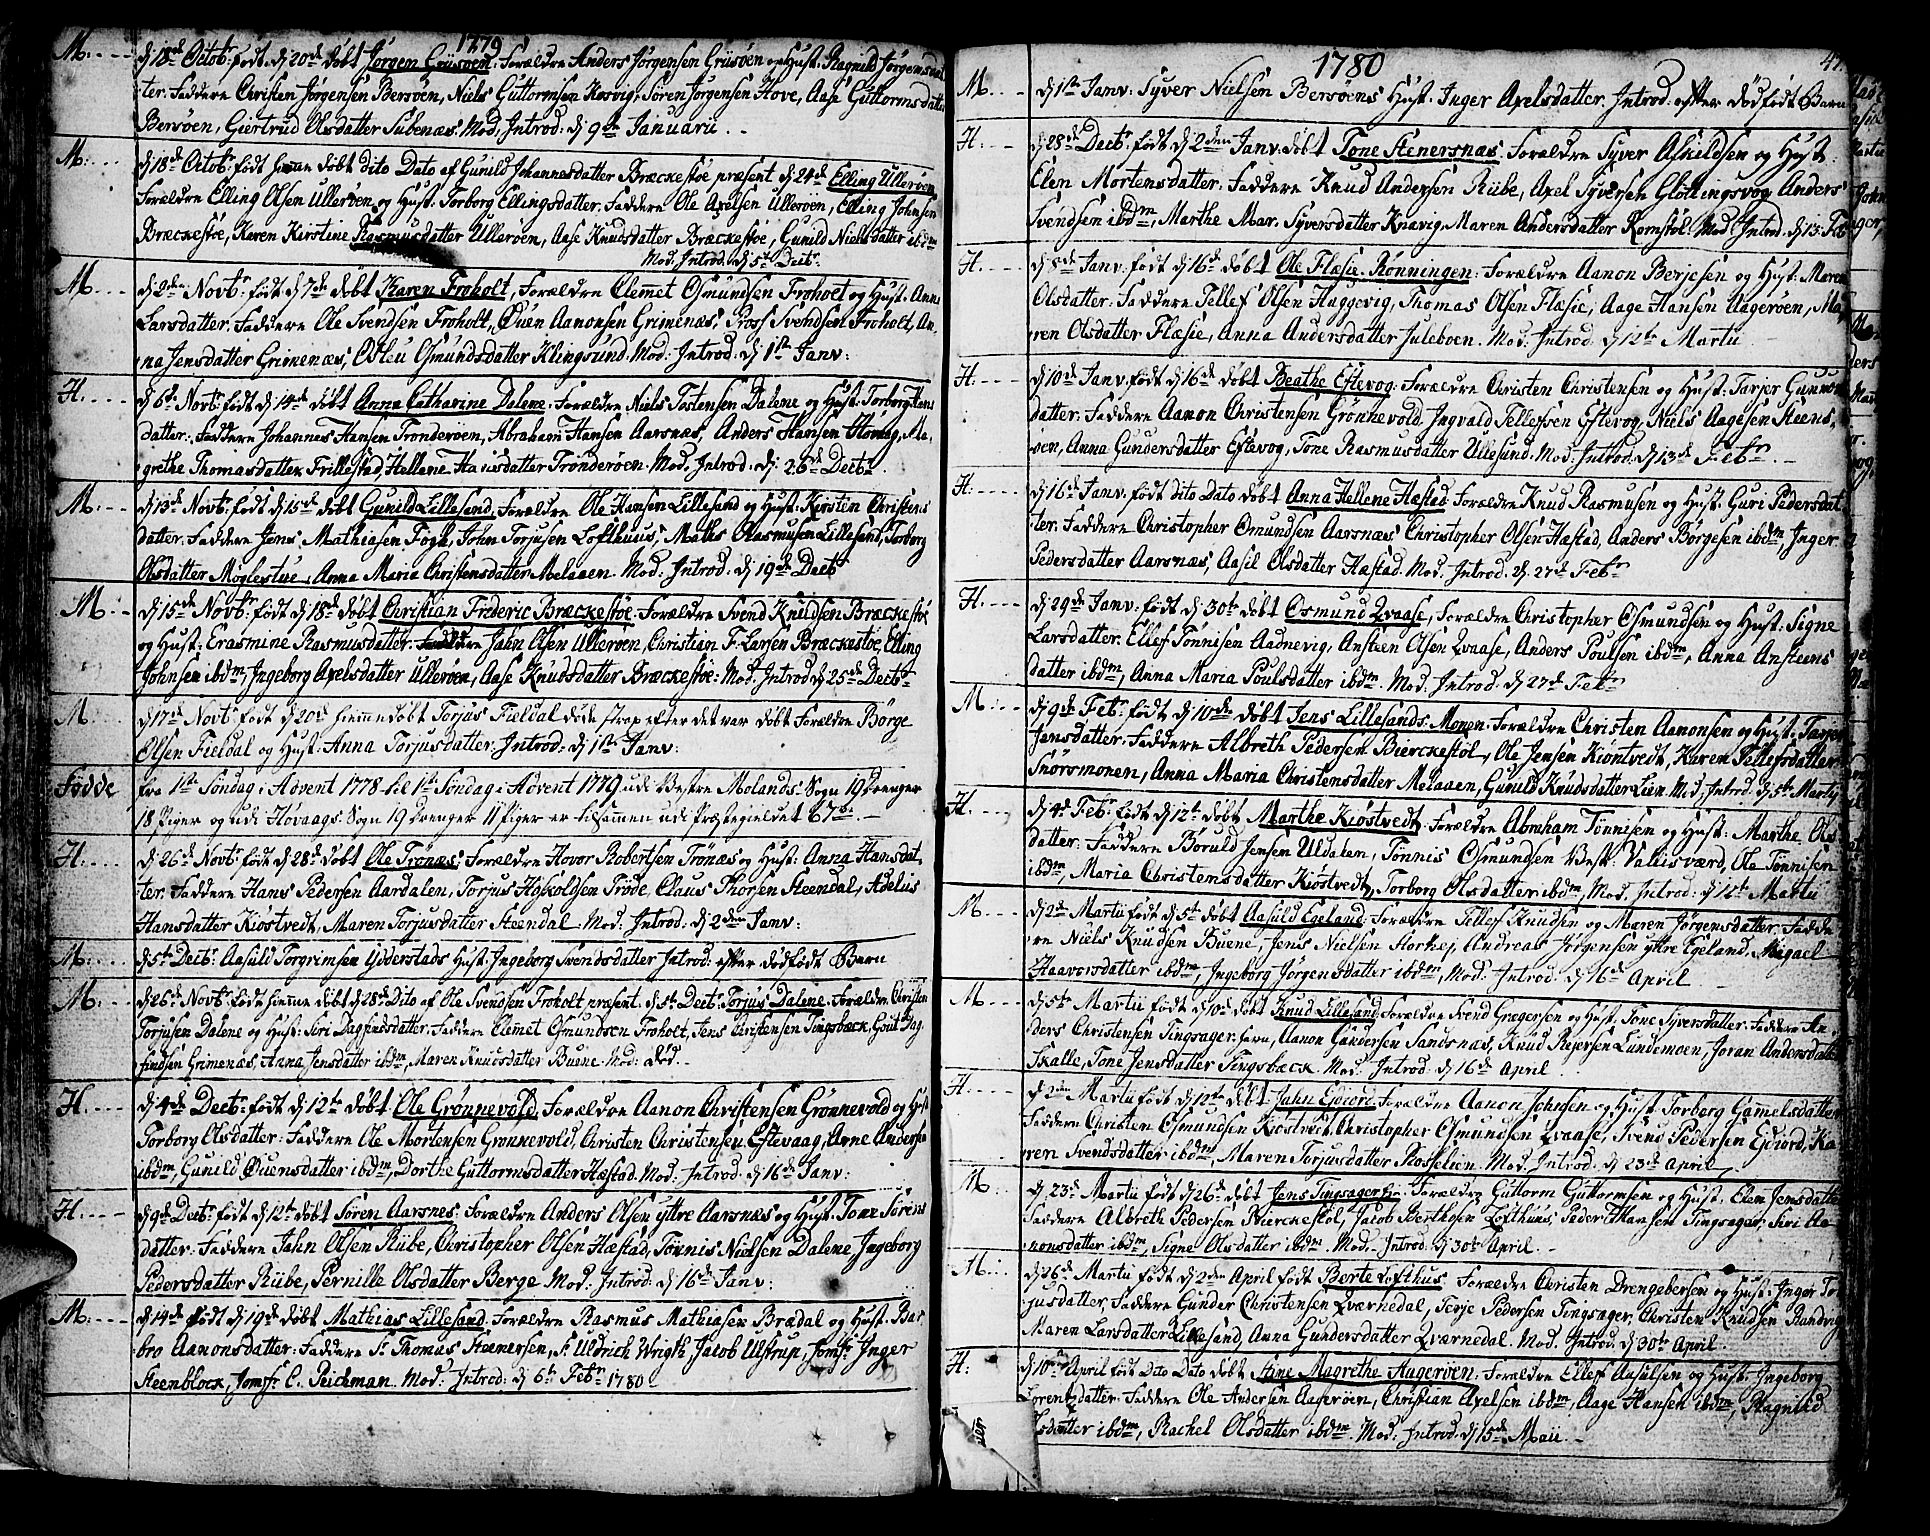 1779
M. d 18de Octobr: født. d 20de døbt Jørgen Grüsøen. Forældre Anders Jørgensen Grüsøen og Hust: Ragnild Jørgensdat
ter. Faddere Christen Jørgensen Bersøen, Niels Guttormsen Kosvig, Søren Jørgensen Hove, Aase Guttormsdatter
Bersøen, Giertrud Olsdatter Subenæs. Mod. Introd: d 9de Januarii
M: d 18de Octobr: født hiemme døbt dito Dato af Gunild Johannesdatter Bræckestøe præsent d 24de Elling Ulleröen
Forældre Elling Olsen Ulleröen og Hust: Torborg Ellingsdatter. Faddere Ole Axelsen Ulleröen, Elling Johnsen
Bræckestøe, Karen Kirstine Rasmusdatter Ulleröen, Aase Knudsdatter Bræckestøe, Gunild Nielsdatter ibdm
Mod. Introd. d 5te Decbr.
M d 2den Novbr: født d 7de døbt Karen Froholt, Forældre Clemmet Osmundsen Froholt og Hust: Anna
Larsdatter: Faddere Ole Svendsen Froholt, Ouen Aanonsen Grimenæs, Pross Svendsen Froholt, An-
na Jensdatter Grimenæs, Osteu Osmundsdatter Klingsund. Mod: Introd: d 1ste Janv:
H. d 6te Novbr: født d 14de døbt Anna Catharine Dalene. Forældre Niels Tostensen Dalene og Hust: Torborg Hans
datter: Faddere Johannes Hansen Tronderøen, Abraham Hansen Aarsnæs, Anders Hansen Homvig, Ma-
grethe Thomasdatter Frillestad, Hellene Hansdatter Trønderøen. Mod. Introd: d: 26de Decbr
M: d 13de Novbr: født d 15de døbt Gunild Lillesand, Forældre Ole Hansen Lillesand og Hust: Kirsten Christens
datter. Faddere Jens Mathiasen Fogh, John Torjusen Lofthuus, Maths Olasmusen Lillesand, Torborg
Olsdatter Møglestue, Anna Maria Christensdatter Melaaen. Mod. Introd: d 19de Decbr
M: d 15de Novbr: født d 18de døbt Christian Frederic Bræckestøe. Forældre Svend Knudsen Bræckestøe
og Hust: Erasmine Rasmusdatter. Faddere Jahn Olsen Ulleröen, Christian F. Larsen Bræckestøe, Elling
Johnsen ibdm, Ingeborg Axelsdatter Ulleröen, Aase Knudsdatter Bræckestøe: Mod: Introd d 25de Decbr
M d 17de Novbr: født d 20de hiemmedøbt Torjus Fieldal døde strax efter det var døbt Forældre Børge
Olsen Fieldal og Hust: Anna Torjusdatter. Introd: d 1ste Janv:
Fødde fra 1ste Søndag i Advent 1778 til 1ste Søndag i Advent 1779 udi Vestre Molands Sogn 19 Drenger
18 Piger og udi Høvaags Sogn 19 Drenger 11 Piger er tilsammen udi Præstegieldet 67
H. d 26de Novbr: født d 28de døbt Ole Trønæs. Forældre Hovor Robertsen Trønæs og Hust: Anna Hansdat
ter. Faddere Hans Pedersen Aardalen, Torjus Hoskoldsen Trøde, Claus Thorsen Steendal, Adelus
Hansdatter Kiøstvedt, Maren Torjusdatter Steendal. Mod: Introd: d 2den Janv:
M: d 5te Decbr: Aasuld Torgrimsen Ydderstads Hust: Ingeborg Svendsdatter Introd: efter dødfødt Barn
M: d 26de Novbr: født hiemme døbt d 28de Dito af Ole Svendsen Froholt præsent d 5te Decbr: Torjus Dalene. Forældre Christen
Torjusen Dalene og Hust: Siri Dagfindsdatter. Faddere Clemet Osmundsen Froholt, Jens Christensen Tingsbæck, Gout Dag
findsen Grimenæs, Anna Jensdatter ibdm, Maren Knudsdatter Buane. Mod: død.
H. d 4de Decbr: født d 12te døbt Ole Grønnevold. Forældre Aanon Christensen Grønnevold og Hust
Torborg Olsdatter: Faddere Ole Mortensen Grønnevold, Christen Christensen Eftevaag, Anne Andersen
ibdm, Gunild Ouensdatter ibdm, Dorthe Guttormsdatter Hæstad. Mod: Introd: d 16de Janv:
H. d 9de Decbr: født d 12te døbt Søren Aarsnes. Forældre Anders Olsen yttre Aarsnæs og Hust. Tone Sørens
datter: Faddere Jahn Olsen Rübe, Christopher Olsen Hæstad, Tønnis Nielsen Dalene, Ingeborg
Pedersdatter Rübe, Pernille Olsdatter Berge Mod: Introd: d 16de Janv:
M: d 14de født d 19de døbt Mathias Lillesand. Forældre Rasmus Mathiasen Brædal og Hust Bar
bro Aanonsdatter: Faddere Sr Thomas Steenersen, Sr Uldrich Wrigth, Jacob Ulstrup, Jomfr: Inger
Steenblock, Jomfr: C. Peichman. Mod: Introd: d 6te Febr 1780
1780
47.
M. d 1ste Janv: Syver Nielsen Bersøens Hust: Inger Axelsdatter. Introd. efter Dødfødt Barn
H. d 28de Decbr: født d 2den Janv. døbt Tone Stenersnæs. Forældre Syver Askildsen og Hust
Elen Mortensdatter: Faddere Knud Andersen Rübe, Axel Syversen Glottingsvog Anders
Svendsen ibdm, Marthe Mar. Syversdatter Knavig, Maren Andersdatter Kornstøl. Mod Introd. d 13 Feb
H. d 8de Janv: født d 16de døbt Ole Flæsie Rønningen: Forældre Aanon Berjesen og Hust: Maren
Olsdatter: Faddere Tellef Olsen Huggevig, Thomas Olsen Flæsie, Aage Hansen Aagerøen, Ma-
ren Olsdatter Flæsie, Anna Andersdatter Juleboen. Mod: Introd: d 12te Martii
H. d 10de Janv. født d 16de døbt Beathe Eftevog. Forældre Christen Christensen og Hust: Tarjer Gunnors
datter: Faddere Aanon Christensen Grønnevold, Ingvald Tellefsen Eftevog, Niels Aagesen Steens-
øen, Anna Gundersdatter Eftevog, Tone Rasmusdatter Ullesund. Mod: Introd: d 13de Febr
H. d 16de Janv. født dito Dato døbt Anna Hellene Hæstad. Forældre Knud Rasmusen og Hust: Guri Pedersdat
ter. Faddere Christopher Osmundsen Aarsnæs, Christopher Olsen Hæstad, Anders Børgesen ibdm, Inger
Pedersdatter Aarsnæs, Aasil Olsdatter Hæstad. Mod. Introd. d. 27de Febr
H. d 29de Janv: født d 30te døbt Osmund Qvaase, Forældre Christopher Osmundsen og Hust: Signe
Larsdatter. Ellef Tønnisen Aabnevig, Ansteen Olsen Qvaase, Anders Poulsen ibdm, Anna Ansteens
datter ibdm, Anna Maria Poulsdatter ibdm. Mod: Introd. d 27de Febr
M: d 9de Febr: født d 10de døbt Jens Lillesands Monen. Forældre Christen Aanonsen og Hust: Tarjer
Jensdatter: Faddere Albreth Pedersen Bierckestøl, Ole Jensen Kiøntvedt, Karen Tellefsdatter
Snørsmonen, Anna Maria Christensdatter Melaaen, Gunild Knudsdatter Lien. Mod: Introd. d 5te Martii
H. d 4de Febr: født d 12te døbt Marthe Kiøstvedt. Forældre Abraham Tønnisen og Hust: Marthe Ols
datter: Faddere Boruld Jensen Uldalen, Tønnis Osmundsen Vest: Valløsværd, Ole Tønnisen
ibdm, Maria Christensdatter Kiøstvedt, Torborg Olsdatter ibdm, Mod: Introd: d 12te Martii
M d 2de Martii født d 5te døbt Aasuld Egeland. Forældre Tellef Knudsen og Maren Jørgensdatter. Fadde
re Niels Knudsen Buene, Jens Nielsen Horkej, Andreas Jørgensen yttre Egeland, Magael
Haavorsdatter ibdm, Ingeborg Jørgensdatter ibdm, Mod: Introd: d 16de April
M d 5te Martii født d 10de døbt Knud Lillesand. Forældre Svend Gregersen og Hust Tone Syversdatter. Faddere An-
ders Christensen Tingsager: hern, Aanon Gundersen Sandsnæs, Knud Reiersen Lundemoen, Joran Andersdatter
Skalle, Tone Jensdatter Tingsbæck Mod: Introd: d 16de April
H. d 2den Martii født d 12te døbt Jahn Ejdiord. Forældre Aanon Johnsen og Hust: Torborg Gamelsdatter
Faddere Christen Osmundsen Kiøstvedt, Christopher Osmundsen Qvaase, Svend Pedersen Ejdiord, Ka
ren Svendsdatter ibdm, Maren Torjusdatter Rosselien. Mod: Introd. d 23de April
M. d. 23de Martii født d 26de døbt Jens Tingsager. Forældre Guttorm Guttormsen og Hust. Elen Jensdatter
Faddere Albreth Pedersen Bierckestøl, Jacob Berthosen Lofthuus, Peder Hansen Tingsager, Siri Aa-
nonsdatter ibdm, Signe Olsdatter ibdm. Mod. Introd. d 30te April.
M. d 26de Martii født d 2den April født Berte Lofthus. Forældre Christen Drengebersen og Hust: Inger Tor
jusdatter. Faddere Gunder Christensen Qværnedal, Terje Pedersen Tingsager, Christen Knudsen Rundvig
Maren Larsdatter Lillesand, Anna Gundersdatter Qværnedal. Mod. Introd. d 30te April.
H: d 10de April født Dito Dato døbt Anne Magrethe Aagerøen. Forældre Ellef Aasulsen og Hust Ingeborg
Lorentzdatter. Faddere Ole Andersen Aagerøen, Christian Axelsen ibdm, Aage Hansen ibdm, Ragnild
Olsdatter ibdm, Rachel Olsdatter ibdm. Mod: Introd. d 15de Maii